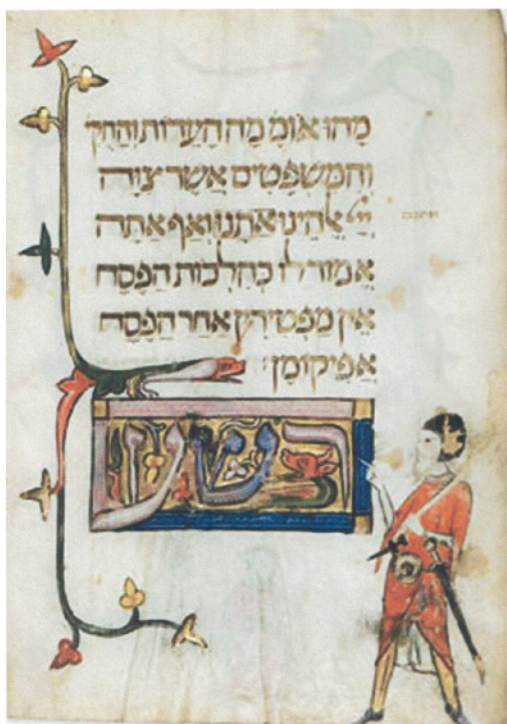 מהו אומ' מה העדות והחק'
והמשפטים אשר צוה
יי אלהינו אתנו ואף אתה
אמור לו כהלכות הפסח
אין מפטירין אחר הפסח
אפיקומן:
רשע